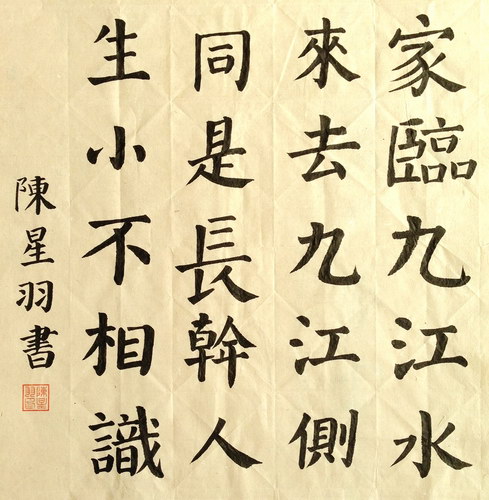 家臨九江水
來去九江側
同是長幹人
生小不相識
陳星羽書